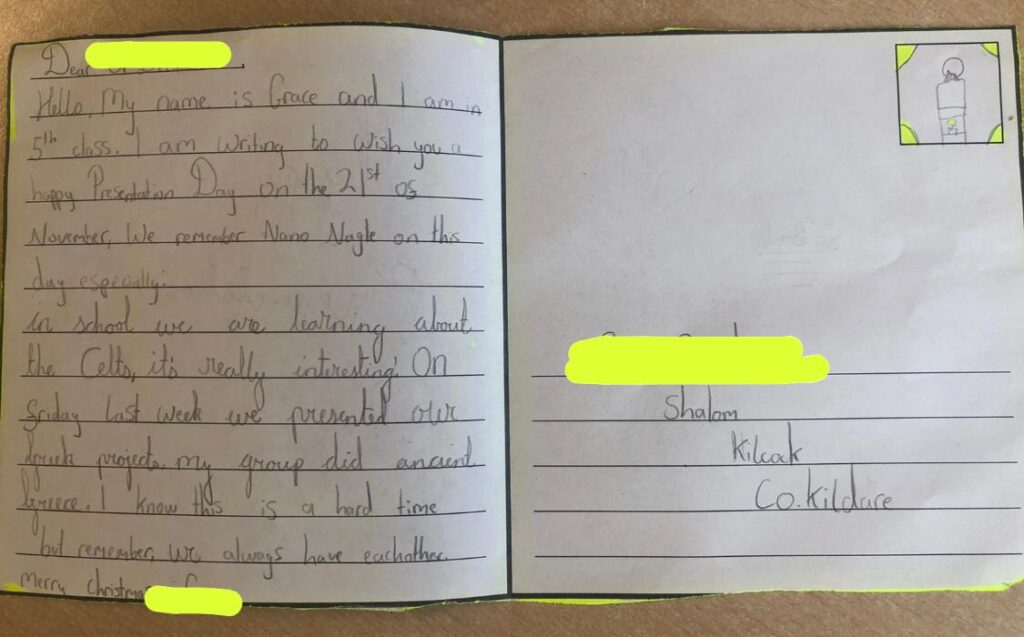 Dear
Hello, My name is Grace and I am in
5th class. I am writing to wish you a
happy Presentation Day on the 21st of
November, We remember Nano Nagle on this
day especially.
in school we are learning about
the Celts, it's really interesting! On
Friday last week we presented our
Greek projects, my group did ancient
Greece. I know this is a hard time
but remember, we always have eachother.
Merry Christmas
Shalom
Kilcock
Co. Kildare